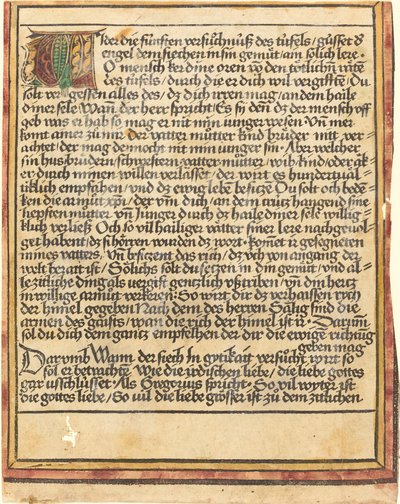 Wider die fünften versůchnüß des tüfels / güsset dˀ
engel dem siechen in sin gemüt / ain sölich lere
O mensch ker dine oren võ den tötlichñ räte
des tüfels / durch die er dich wil vergifften Du
solt vergessen alles des / dz dich irren mag / an dem haile
diner sele Wañ der herr spricht / Es sy deñ dz der mensch off
geb was er hab so mag er nit min iunger wesen Uñ wer
komt zů mir der vatter můtter kind brüder nitt ver
achtet der mag dennocht nit min iunger sin Aber welcher
sin hus brüdern schwestern vatter můtter / wib kind / oder äk=
er durch minen willen verlässet / der wirt es hundertual=
tklich empfahen / vnd dz ewig lebē besitzē Du solt och bedē=
ken die armůt xpī / der vm dich / an dem crütz hangend sine
liepsten můtter / vñ Junger durch dz haile diner sele willig=
klich verließ Och so vil hailiger vätter siner lere nachgeuol=
get habent / dz si hörren wurden dz wort Komet ir gesegneten
mines vatters / vñ besitzent das rich / dz üch von angang der
welt berait ist / Sölichs solt du setzen in din gemüt / vnd al=
le zitliche ding als vergift gentzlich vßtriben / vn din hertz
in willige armůt verkeren / So wirt dir dz verhaissen rych
der himel gegeben Nach dem des herren Sälig sind die
armen des gaists / wan die rich der himel ist ir Darūm
sol du dich dem gantz empfelhen der dir die ewige richtūg
geben mag
Darvmb Wann der siech in gytikait versůcht wirt so
sol er betrachtē Wie die irdischen liebe / die liebe gottes
gar vschlüsset / Als Gregorius spricht / So vil wyter ist
die gottes liebe / So vil die liebe grösser ist zů dem zitlichen